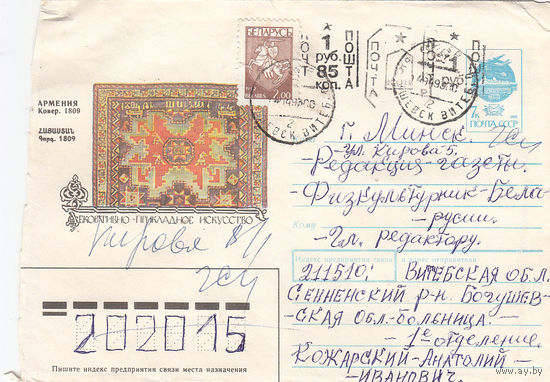 БЕЛАРУСЬ
BELARUS
2.00
1
руб.
85
коп.
ПОЧТА
ПОЧТА
7к
ПОЧТА СССР
АРМЕНИЯ
Ковер. 1809
ՀԱՅԱՍՏԱՆ
Գորգ. 1809
ДЕКОРАТИВНО-ПРИКЛАДНОЕ ИСКУССТВО
г. Минск.
ул. Кирова 5.
- Редакция газеты.
Физкультурник Бела-
Кому
русии.
- Гл. редактору.
Кирова 8/1
Индекс предприятия связи и адрес отправителя
211510; Витебская обл.
Сенненский р-н. Богушев-
ская обл. больница. -
1е отделение.
Кожарский Анатолий -
Иванович.
202015
Пишите индекс предприятия связи места назначения
www.ay.by